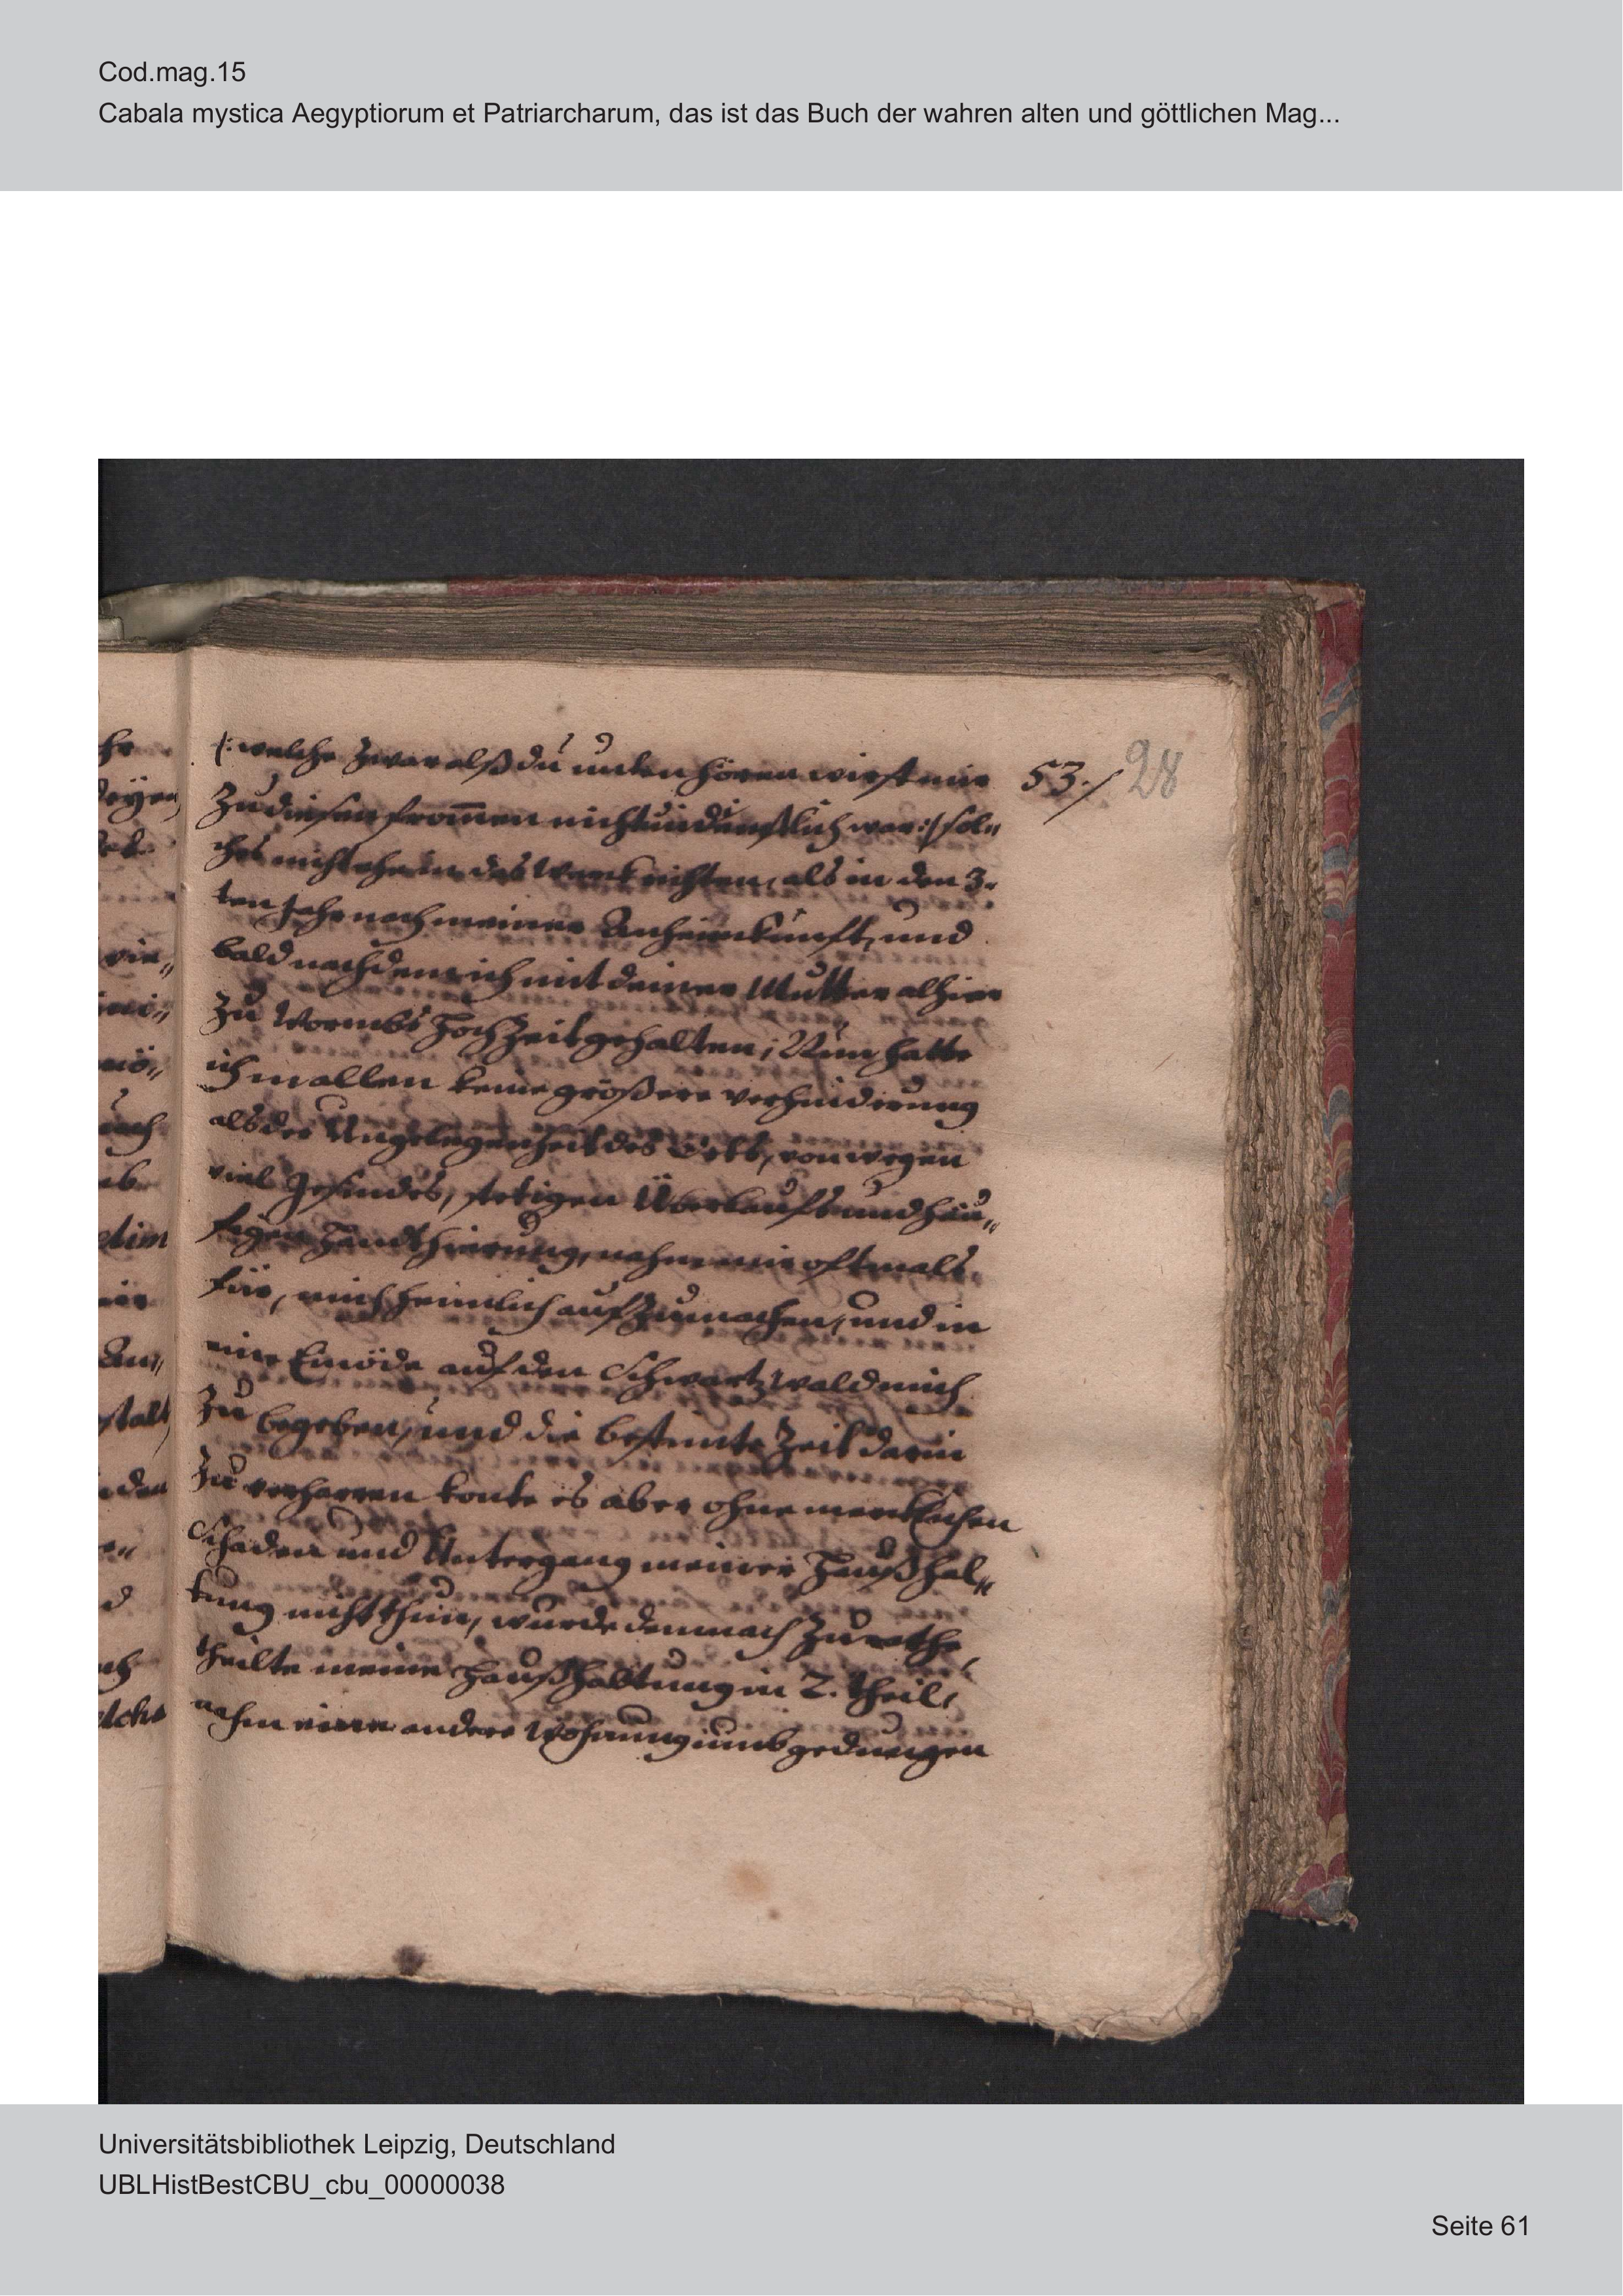 Cod.mag.15
Cabala mystica Aegyptiorum et Patriarcharum, das ist das Buch der wahren alten und göttlichen Mag...
53./ 28
(: welche zwar alß du unden hören wirst mir
zu diesen frommen nicht undienstlich war :) sol„
ches nicht ehe in das Werk richten, als in den 3.
ten Jahr nach meiner Anheimkunfft, und
bald nachdem ich mit deiner Mutter alhier
zu Wormbs HochZeit gehalten; Nun hatte
ich in allen keine größere verhinderung
als der Ungelegenheit des Orts, von wegen
viel Gesindes, stetigen Überlaufs und häu„
figen Handthierung, nahm mir oftmals
für, mich heimlich auf zumachen, und in
eine Einöde auf den Schwartzwald mich
zu begeben, und die bestimte Zeit darin
zu verharren konte es aber ohne mercklichen
Schaden und Untergang meiner Haußhal„
tung nicht thun, wurde demnach zu rathe,
theilte meine Haußhaltung in 2. theil,
nahm eine andere Wohnung umb gedungen
Universitätsbibliothek Leipzig, Deutschland
UBLHistBestCBU_cbu_00000038
Seite 61